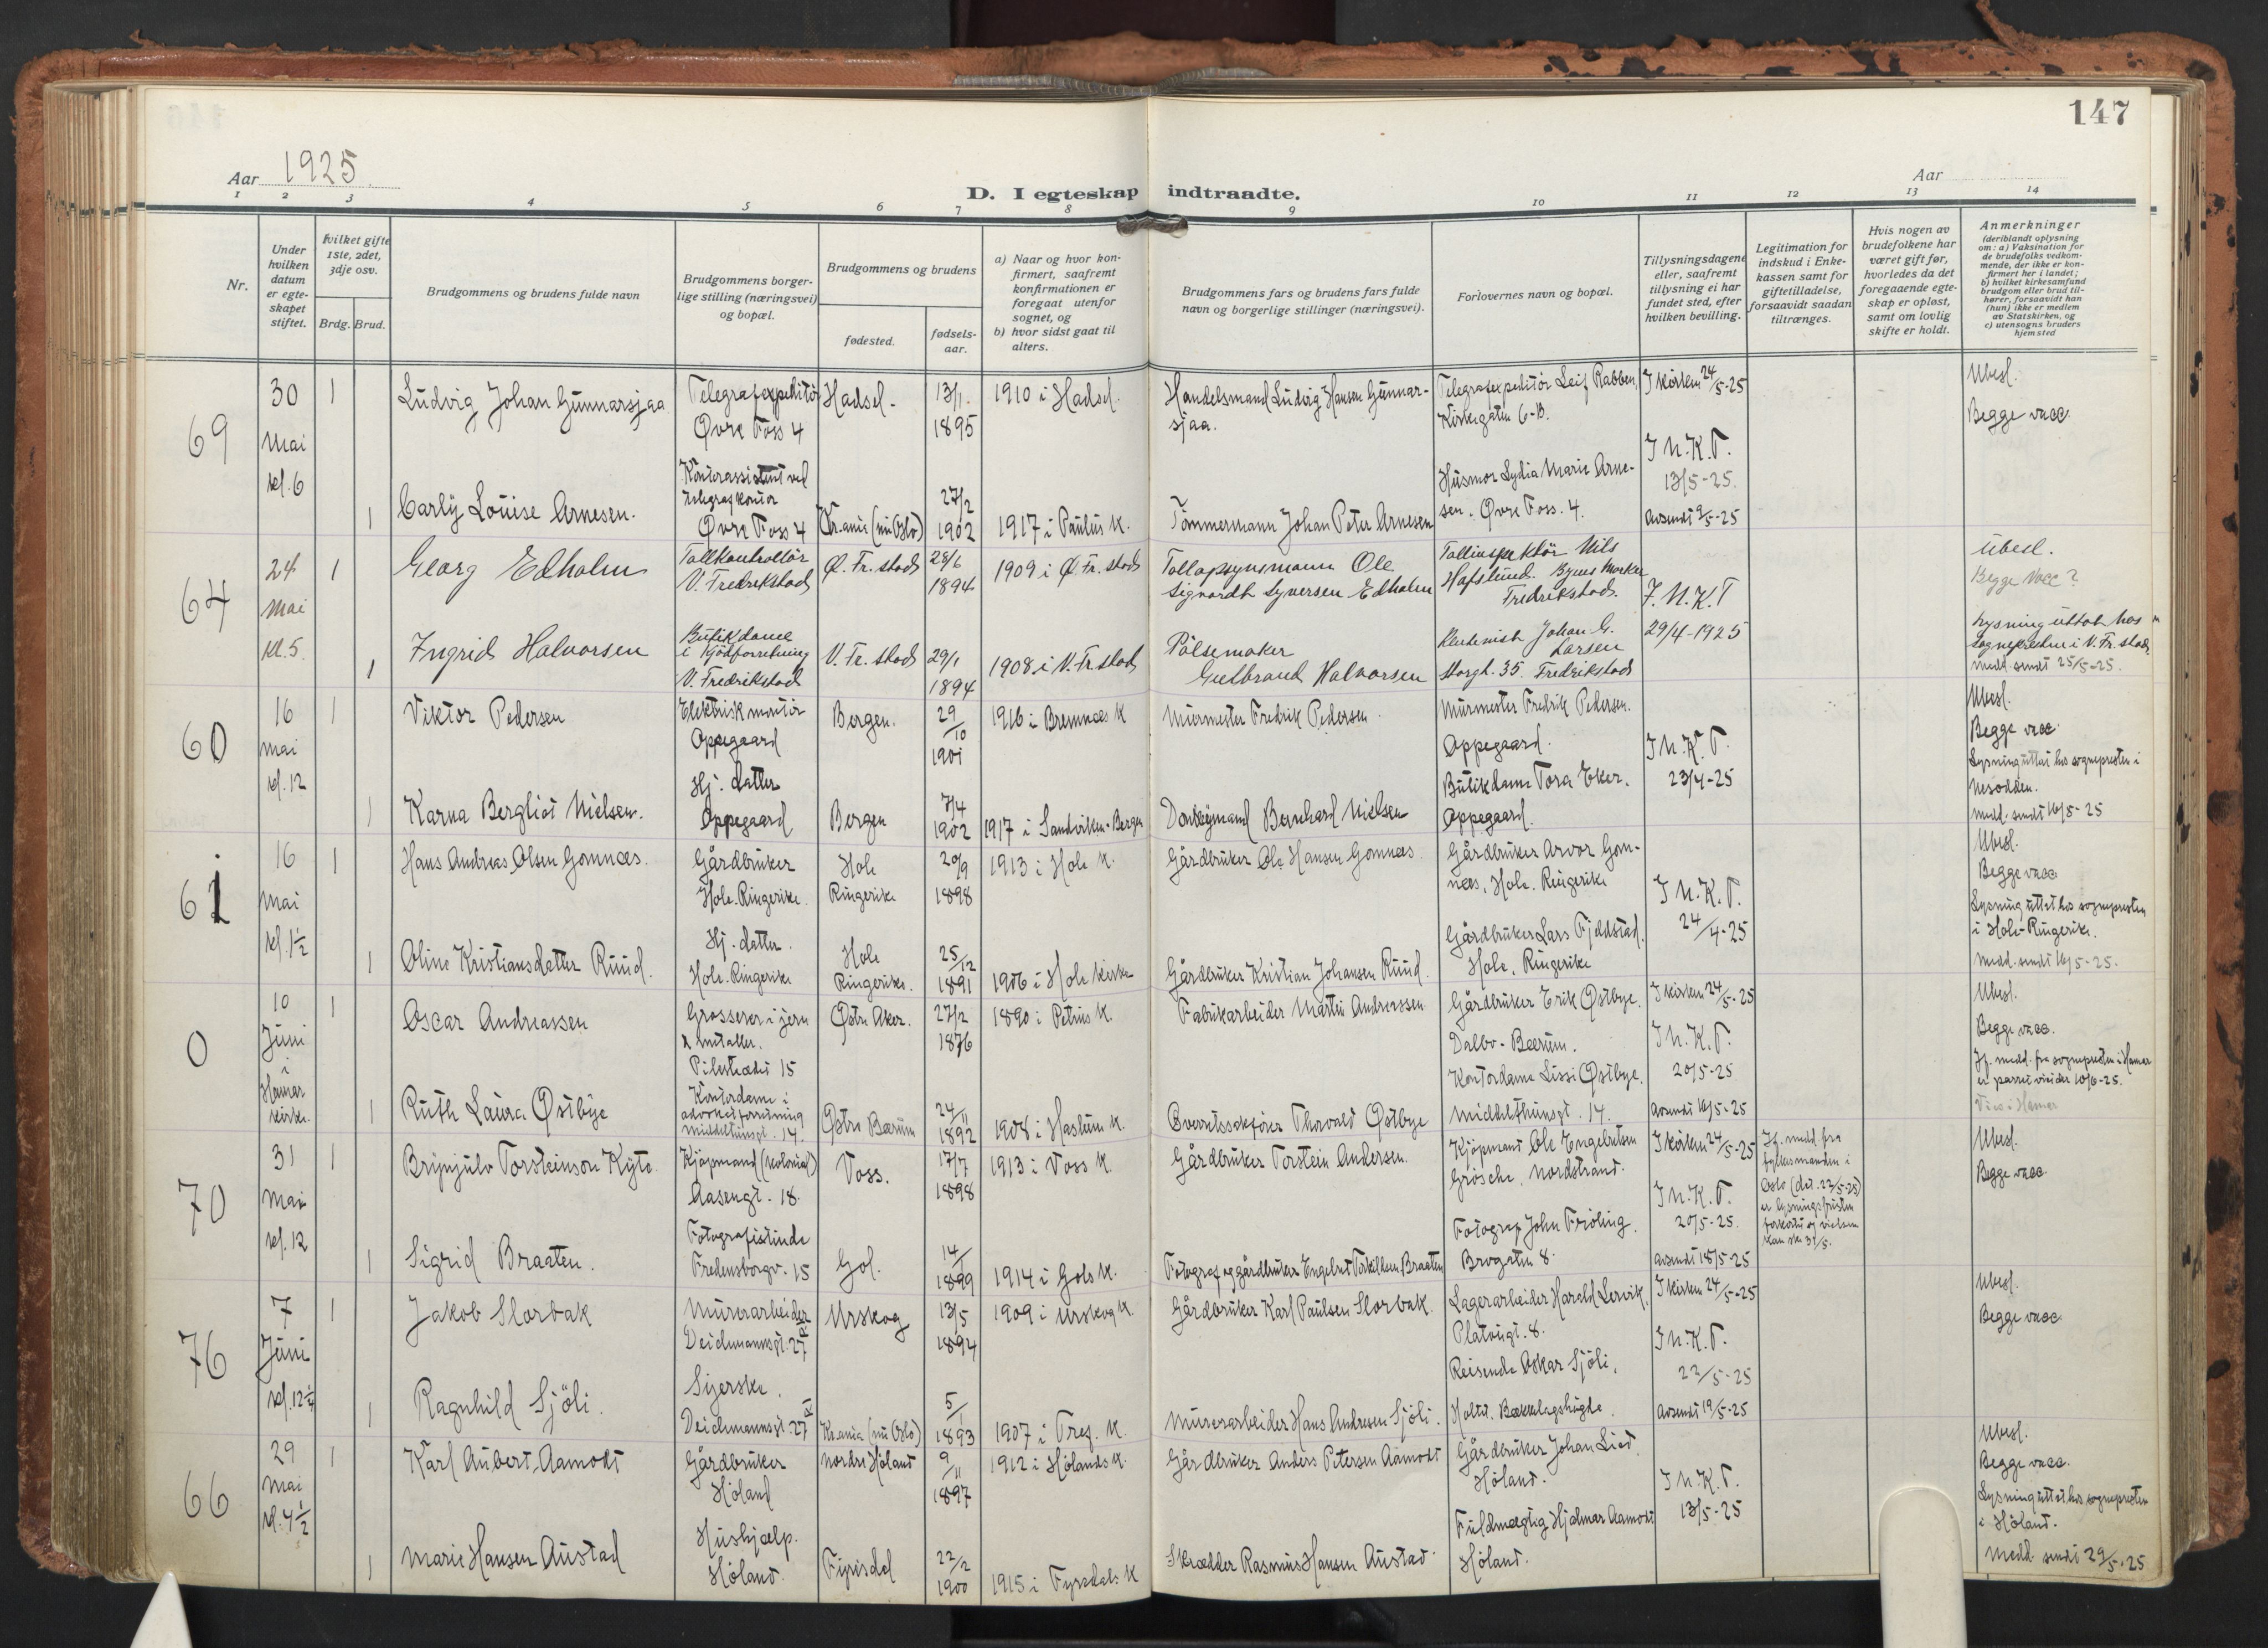 147
Aar 1925.
Aar
D. I egteskap indtraadte.
1 2 3 4 5 6 7 8 9 10 11 12 13 14
Nr.
Under hvilken datum er egteskapet stiftet.
hvilket gifte 1ste, 2det, 3dje osv.
Brdg. Brud.
Brudgommens og brudens fulde navn
Brudgommens borgerlige stilling (næringsvei) og bopæl.
Brudgommens og brudens
fødested.
fødselsaar.
a) Naar og hvor konfirmert, saafremt konfirmationen er foregaat utenfor sognet, og
b) hvor sidst gaat til alters.
Brudgommens fars og brudens fars fulde navn og borgerlige stillinger (næringsvei).
Forlovernes navn og bopæl.
Tillysningsdagene eller, saafremt tillysning ei har fundet sted, efter hvilken bevilling.
Legitimation for indskud i Enkekassen samt for giftetilladelse, forsaavidt saadan tiltrænges.
Hvis nogen av brudefolkene har været gift før, hvorledes da det foregaaende egteskap er opløst, samt om lovlig skifte er holdt.
Anmerkninger
(deriblandt oplysning om: a) Vaksination for de brudefolks vedkommende, der ikke er konfirmert her i landet; b) hvilket kirkesamfund brudgom eller brud tilhører, forsaavidt han (hun) ikke er medlem av Statskirken, og c) utensogns bruders hjemsted
69
30 Mai kl. 6
1 Ludvig Johan Gunnarsjaa
Telegrafexpeditör Øvre Foss 4
Hadsel. 13/1. 1895
1910 i Hadsel.
Handelsmand Ludvig Hansen Gunnarsjaa.
Telegrafexpeditör Leif Rabben, Kirkegaten 6-B.
I kirken 24/5-25
I N.K.T. 13/5-25.
Avsendt 9/5-25
Ubesl.
Begge vacc.
1 Carly Louise Arnesen.
Kontorassistent ved telegrafkontor Øvre Foss 4
Kr.ania (nu Oslo) 27/2 1902
1917 i Paulus K.
Tømmermann Johan Peter Arnesen
Husmor Lydia Marie Arnesen. Øvre Foss. 4.
64
24 Mai Kl. 5.
1 Georg Edholm
Tollkontrollör V. Fredrikstad
Ø. Fr. stad 28/6 1894
1909 i Ø. Fr. stad
Tollopsynsmann Ole Sigvardh Syversen Edholm
Tollinspektör Nils Hafslund. Byens Marker Fredrikstad.
I. N.K.T 29/4-1925
Ubesl.
Begge Vacc?
Lysning uttatt hos sognepresten i V. Fr. stad,
medd. sendt 25/5-25.
1 Ingrid Halvorsen
Butikdame i Kjödforretning V. Fredrikstad
V. Fr. stad 29/1 1894
1908 i V. Fr. stad
Pölsemaker Gulbrand Halvorsen
Johan G. Larsen Storgt. 35. Fredrikstad
60
16 Mai kl. 12
1 Viktor Pedersen
Elektrisk montör Oppegaard
Bergen. 29/10 1901
1916 i Bremnæs K
Murmester Fredrik Pedersen.
Murmester Fredrik Pedersen. Oppegaard.
I N.K.T. 23/4-25
Ubesl.
Begge vacc.
Lysning uttat hos sognepresten i Nesodden.
medd. sendt 16/5-25
1 Karna Bergliot Nielsen.
Hj. datter Oppegaard
Bergen 7/4 1902
1917 i Sandviken-Bergen
Donkeymand Bernhard Nielsen
Butikdame Tora Eker. Oppegaard.
61
16 Mai kl. 1 1/2
1 Hans Andreas Olsen Gomnæs.
Gårdbruker Hole. Ringerike.
Hole Ringerike 20/9 1898
1913 i Hole K.
Gårdbruker Ole Hansen Gomnæs.
Gårdbruker Arvor Gomnæs, Hole. Ringerike
I N.K.T. 24/4-25
Ubesl.
Begge vacc
Lysning uttat hos sognepresten i Hole-Ringerike.
Medd. sendt 16/5-25.
1 Oline Kristiansdatter Ruud.
Hj. datter. Hole. Ringerike
Hole Ringerike. 25/12 1891
1906 i Hole kirke
Gårdbruker Kristian Johansen Ruud.
Gårdbruker Lars Fjeldstad. Hole, Ringerike
0
10 Juni i Hamar kirke.
1 Oscar Andreassen
Grosserer i jern & metaller. Pilestrædet 15
Østre Aker. 27/2 1876
1890 i Petrus K.
Fabrikarbeider Martin Andreassen.
Gårdbruker Erik Østbye. Dalbo-Bærum.
I kirken 24/5-25
I N.K.T. 20/5-25
Avsendt 16/5-25
Ubesl.
Begge vacc.
Jf. medd. fra sognepresten i Hamar er parret viet der 10/6-25.
Viet i Hamar
1 Ruth Laura Østbye
Kontordame i advokatforretning Middelthunsgt. 14.
Østre Bærum 24/11 1892
1908 i Haslum K.
Overretssakfører Thorvald Østbye
Kontordame Lissi Østbye. Middelthunsgt. 14.
70
31 Mai kl. 12
1 Brynjulv Torsteinson Kyte.
Kjøpmand (kolonial) Aasengt. 18.
Voss. 17/7 1898
1913 i Voss K.
Gårdbruker Torstein Andersen.
Kjøpmand Ole Engebretsen Grösche, Nordstrand.
I kirken 24/5-25
I N.K.T. 20/5-25.
avsendt 18/5-25
Jf. medd. fra fylkesmanden i Oslo (dat. 22/5-25) er lysningsfristen forkortet og vielsen kan ske 31/5.
Ubesl.
Begge vacc.
1 Sigrid Braaten.
Fotografistinde Fredensborgv. 15
Gol. 14/ 1899
1914 i Gols K.
Fotograf og gårdbruker Engebret Torkildsen Braaten
Fotograf John Fröling. Brogaten 8.
76
7 Juni kl. 12 1/4
1 Jakob Slorbak
Murerarbeider Deichmannsgt. 27
Urskog 13/5 1894
1909 i Urskog K.
Gårdbruker Karl Paulsen Slorbak.
Lagerarbeider Harald Lervik, Platougt. 8.
I kirken 24/5-25
I N.K.T. 22/5-25
Avsendt 19/5-25
Ubesl.
Begge vacc.
1 Ragnhild Sjöli.
Syerske. Deichmannsgt. 27
Kr.ania (nu Oslo) 5/1 1893
1907 i Tref. K.
Murerarbeider Hans Andresen Sjöli.
Reisende Oskar Sjöli, Bækkelagshögda.
66
29 Mai kl. 4 1/2
1 Karl Aubert Aamodt
Gårdbruker Höland
Nordre Höland 9/11 1897
1912 i Hölands K.
Gårdbruker Anders Petersen Aamodt
Gårdbruker Johan Lied. Höland.
I N.K.T. 13/5-25
Ubesl.
Begge vacc.
Lysning uttat hos sognepresten i Höland.
Medd. sendt 29/5-25
1 Marie Hansen Austad
Hushjælp. Höland.
Fyrisdal 22/2 1900
1915 i Fyresdals K
Skrædder Rasmus Hansen Austad
Fuldmægtig Hjalmar Aamodt Höland.